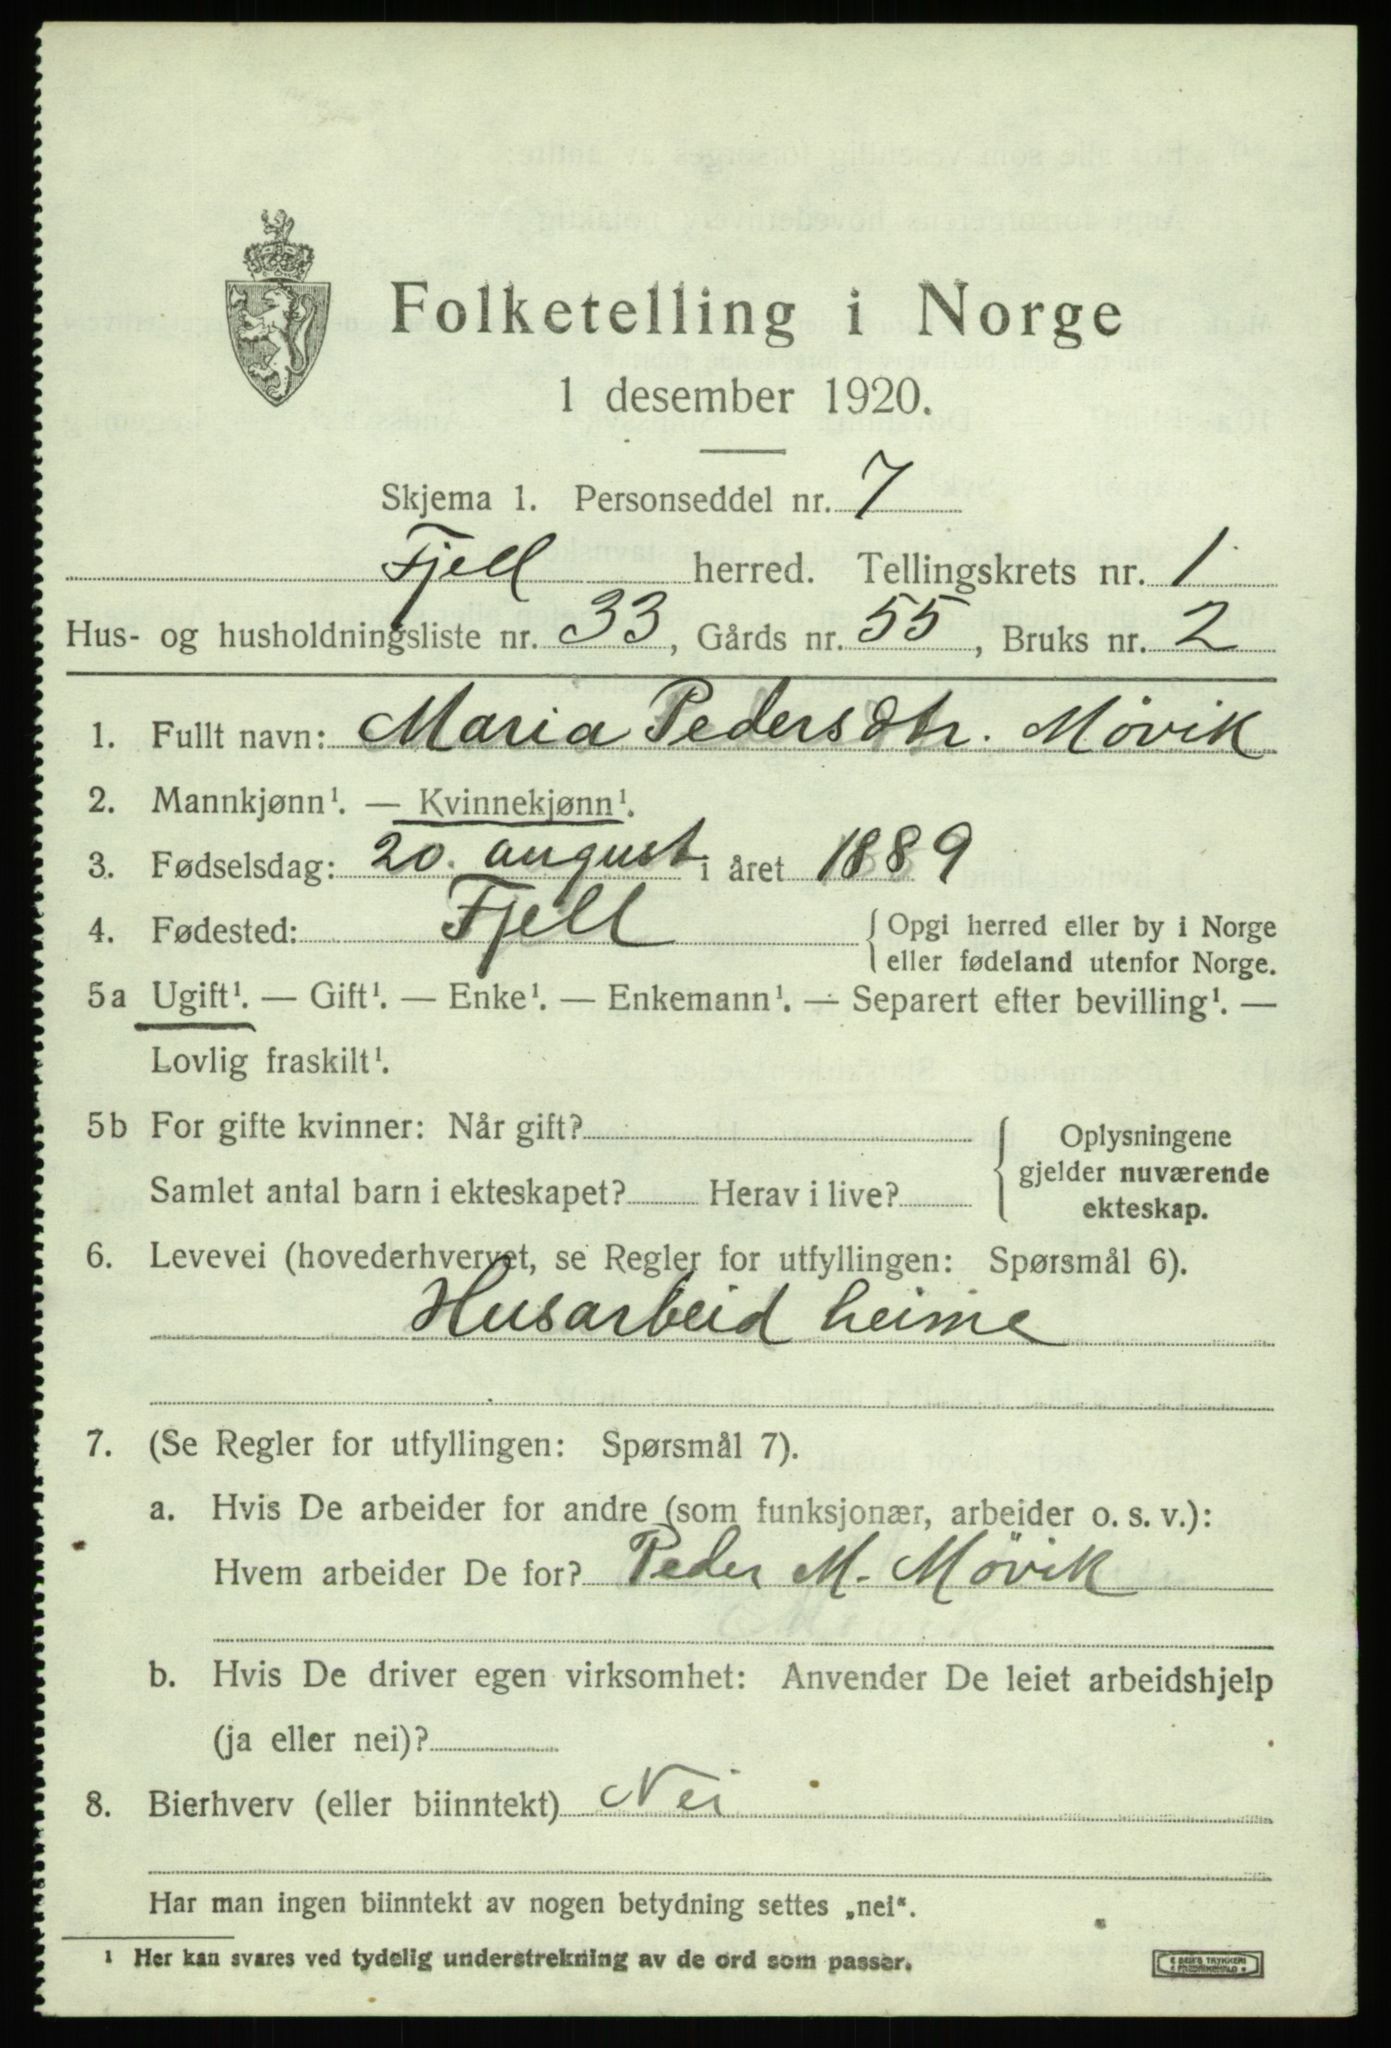 Folketelling i Norge
1 desember 1920.
Skjema 1. Personseddel nr. 7
Fjell herred. Tellingskrets nr. 1
Hus- og husholdningsliste nr. 33, Gårds nr. 55, Bruks nr. 2
1. Fullt navn: Maria Pedersdtr. Møvik
2. Mannkjønn¹. — Kvinnekjønn¹.
3. Fødselsdag: 20. august i året 1889
4. Fødested: Fjell { Opgi herred eller by i Norge
eller fødeland utenfor Norge.
5a Ugift¹. — Gift¹. — Enke¹. — Enkemann¹. — Separert efter bevilling¹. —
Lovlig fraskilt¹.
5b For gifte kvinner: Når gift?
Samlet antal barn i ekteskapet? Herav i live?
{ Oplysningene
gjelder nuværende
ekteskap.
6. Levevei (hovederhvervet, se Regler for utfyllingen: Spørsmål 6).
Husarbeid heime
7. (Se Regler for utfyllingen: Spørsmål 7).
a. Hvis De arbeider for andre (som funksjonær, arbeider o. s. v.):
Hvem arbeider De for? Peder M. Møvik
b. Hvis De driver egen virksomhet: Anvender De leiet arbeidshjelp
(ja eller nei)?
8. Bierhverv (eller biinntekt) Nei
Har man ingen biinntekt av nogen betydning settes „nei“.
¹ Her kan svares ved tydelig understrekning av de ord som passer.